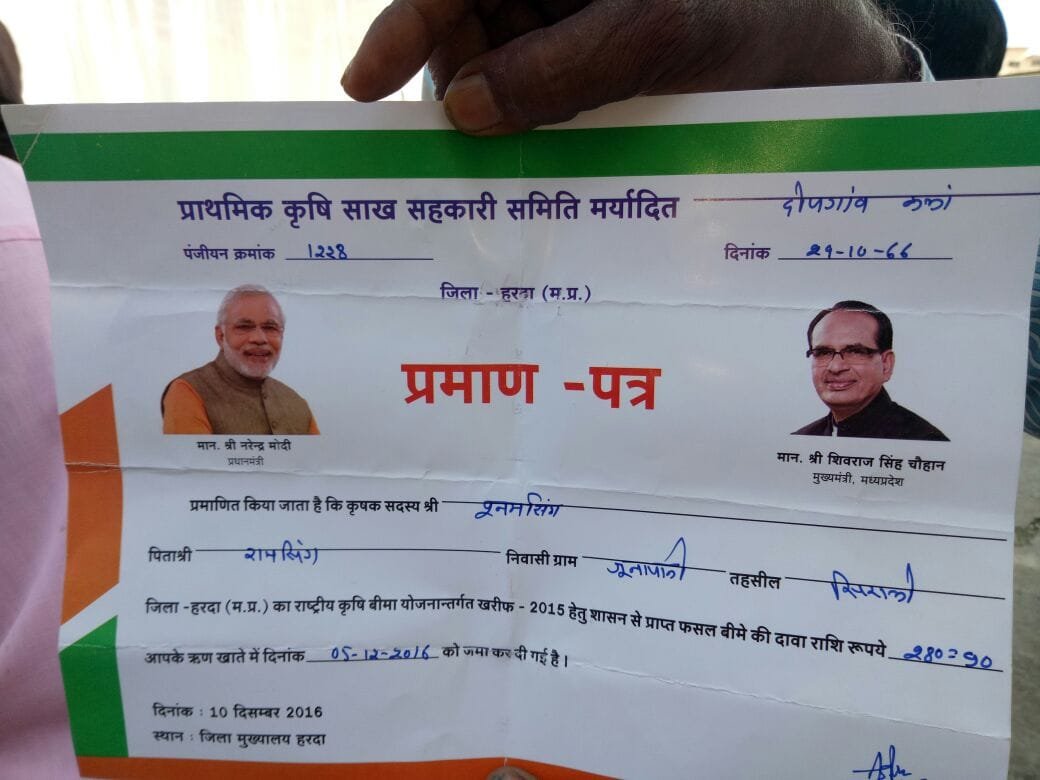 प्राथमिक कृषि साख सहकारी समिति मर्यादित दीपगांव कलां
पंजीयन क्रमांक 1228 दिनांक 29-10-66
जिला - हरदा (म.प्र.)
प्रमाण -पत्र
मान. श्री नरेन्द्र मोदी
प्रधानमंत्री
मान. श्री शिवराज सिंह चौहान
मुख्यमंत्री, मध्यप्रदेश
प्रमाणित किया जाता है कि कृषक सदस्य श्री पूनमसिंग
पिताश्री रामसिंग निवासी ग्राम तहसील सिराली
जिला -हरदा (म.प्र.) का राष्ट्रीय कृषि बीमा योजनान्तर्गत खरीफ - 2015 हेतु शासन से प्राप्त फसल बीमे की दावा राशि रूपये 280=90
आपके ऋण खाते में दिनांक 05-12-2016 को जमा कर दी गई है।
दिनांक : 10 दिसम्बर 2016
स्थान : जिला मुख्यालय हरदा